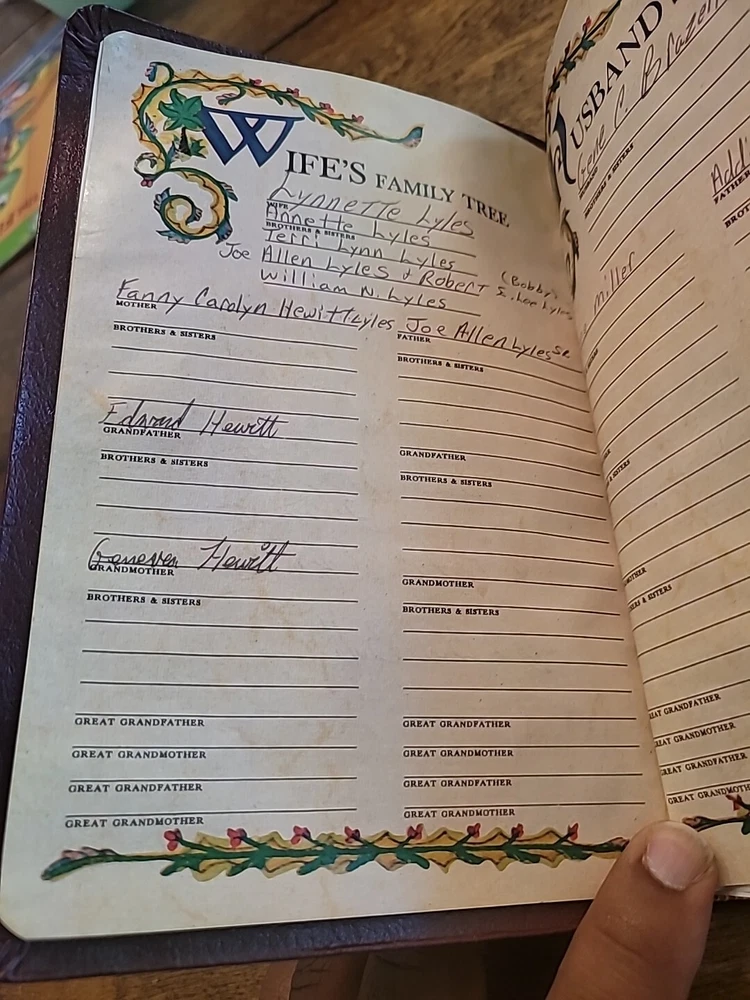 WIFE'S FAMILY TREE
Lynnette Lyles
WIFE
Annette Lyles
BROTHERS & SISTERS
Terri Lynn Lyles
Joe Allen Lyles & Robert E. Lee Lyles (Bobby)
William N. Lyles
Fanny Carolyn Hewitt Lyles
MOTHER
BROTHERS & SISTERS
Edward Hewitt
GRANDFATHER
BROTHERS & SISTERS
Hewitt
GRANDMOTHER
BROTHERS & SISTERS
GREAT GRANDFATHER
GREAT GRANDMOTHER
GREAT GRANDFATHER
GREAT GRANDMOTHER
Joe Allen Lyles Sr.
FATHER
BROTHERS & SISTERS
GRANDFATHER
BROTHERS & SISTERS
GRANDMOTHER
BROTHERS & SISTERS
GREAT GRANDFATHER
GREAT GRANDMOTHER
GREAT GRANDFATHER
GREAT GRANDMOTHER
HUSBAND
Gene C.
BROTHERS & SISTERS
Addi
FATHER
Miller
GREAT GRANDFATHER
GREAT GRANDMOTHER
GREAT GRANDFATHER
GREAT GRANDMOTH